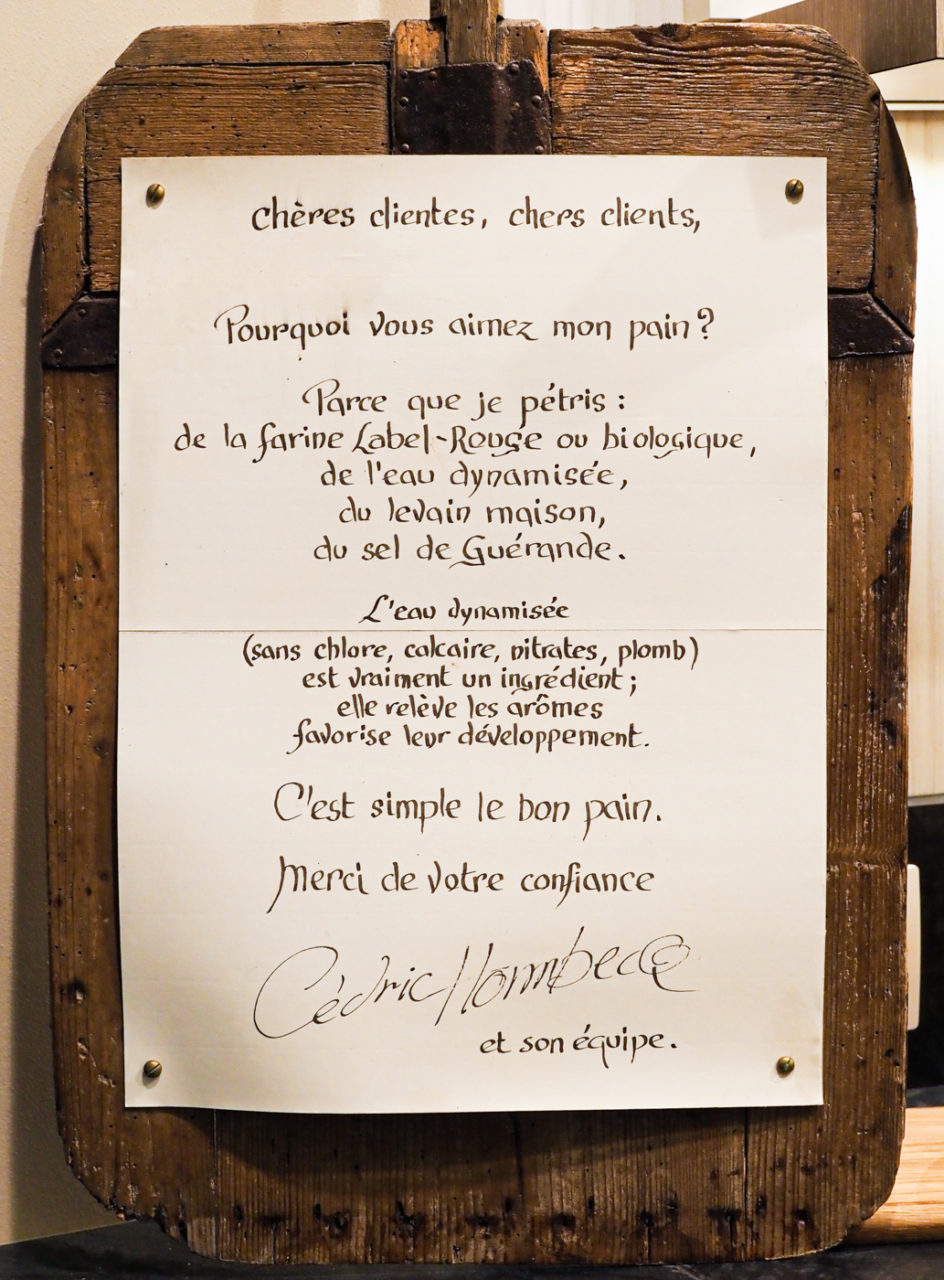 Chères clientes, chers clients,
Pourquoi vous aimez mon pain ?
Parce que je pétris :
de la farine Label-Rouge ou biologique,
de l'eau dynamisée,
du levain maison,
du sel de Guérande.
L'eau dynamisée
(sans chlore, calcaire, nitrates, plomb)
est vraiment un ingrédient ;
elle relève les arômes
favorise leur développement.
C'est simple le bon pain.
Merci de votre confiance
Cédric
et son équipe.